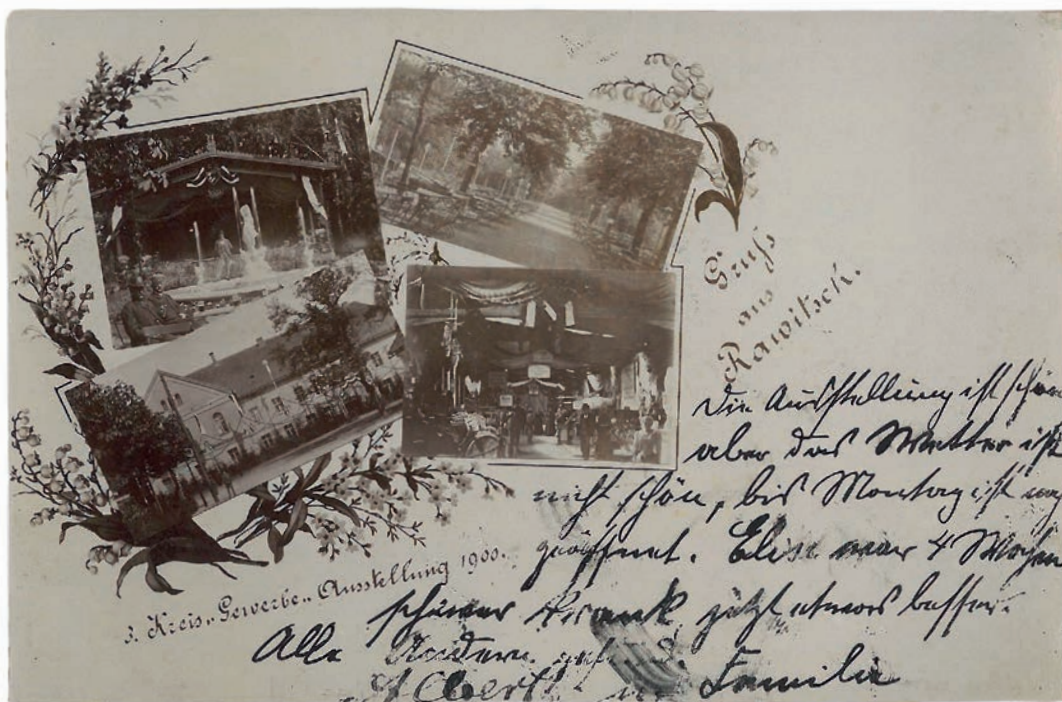 Gruß
aus
Rawitsch.
3. Kreis-Gewerbe-Ausstellung 1900.
Die Ausstellung ist schön
aber das Wetter ist
nicht schön, bis Montag ist
geöffnet. Elise war 4 Wochen
schwer krank jetzt etwas besser.
Alle Andern
Familie